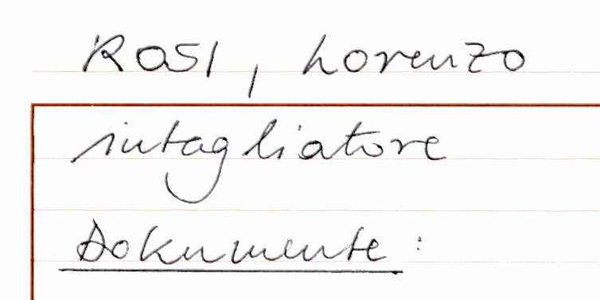 Rosi, Lorenzo
intagliatore
Dokumente: